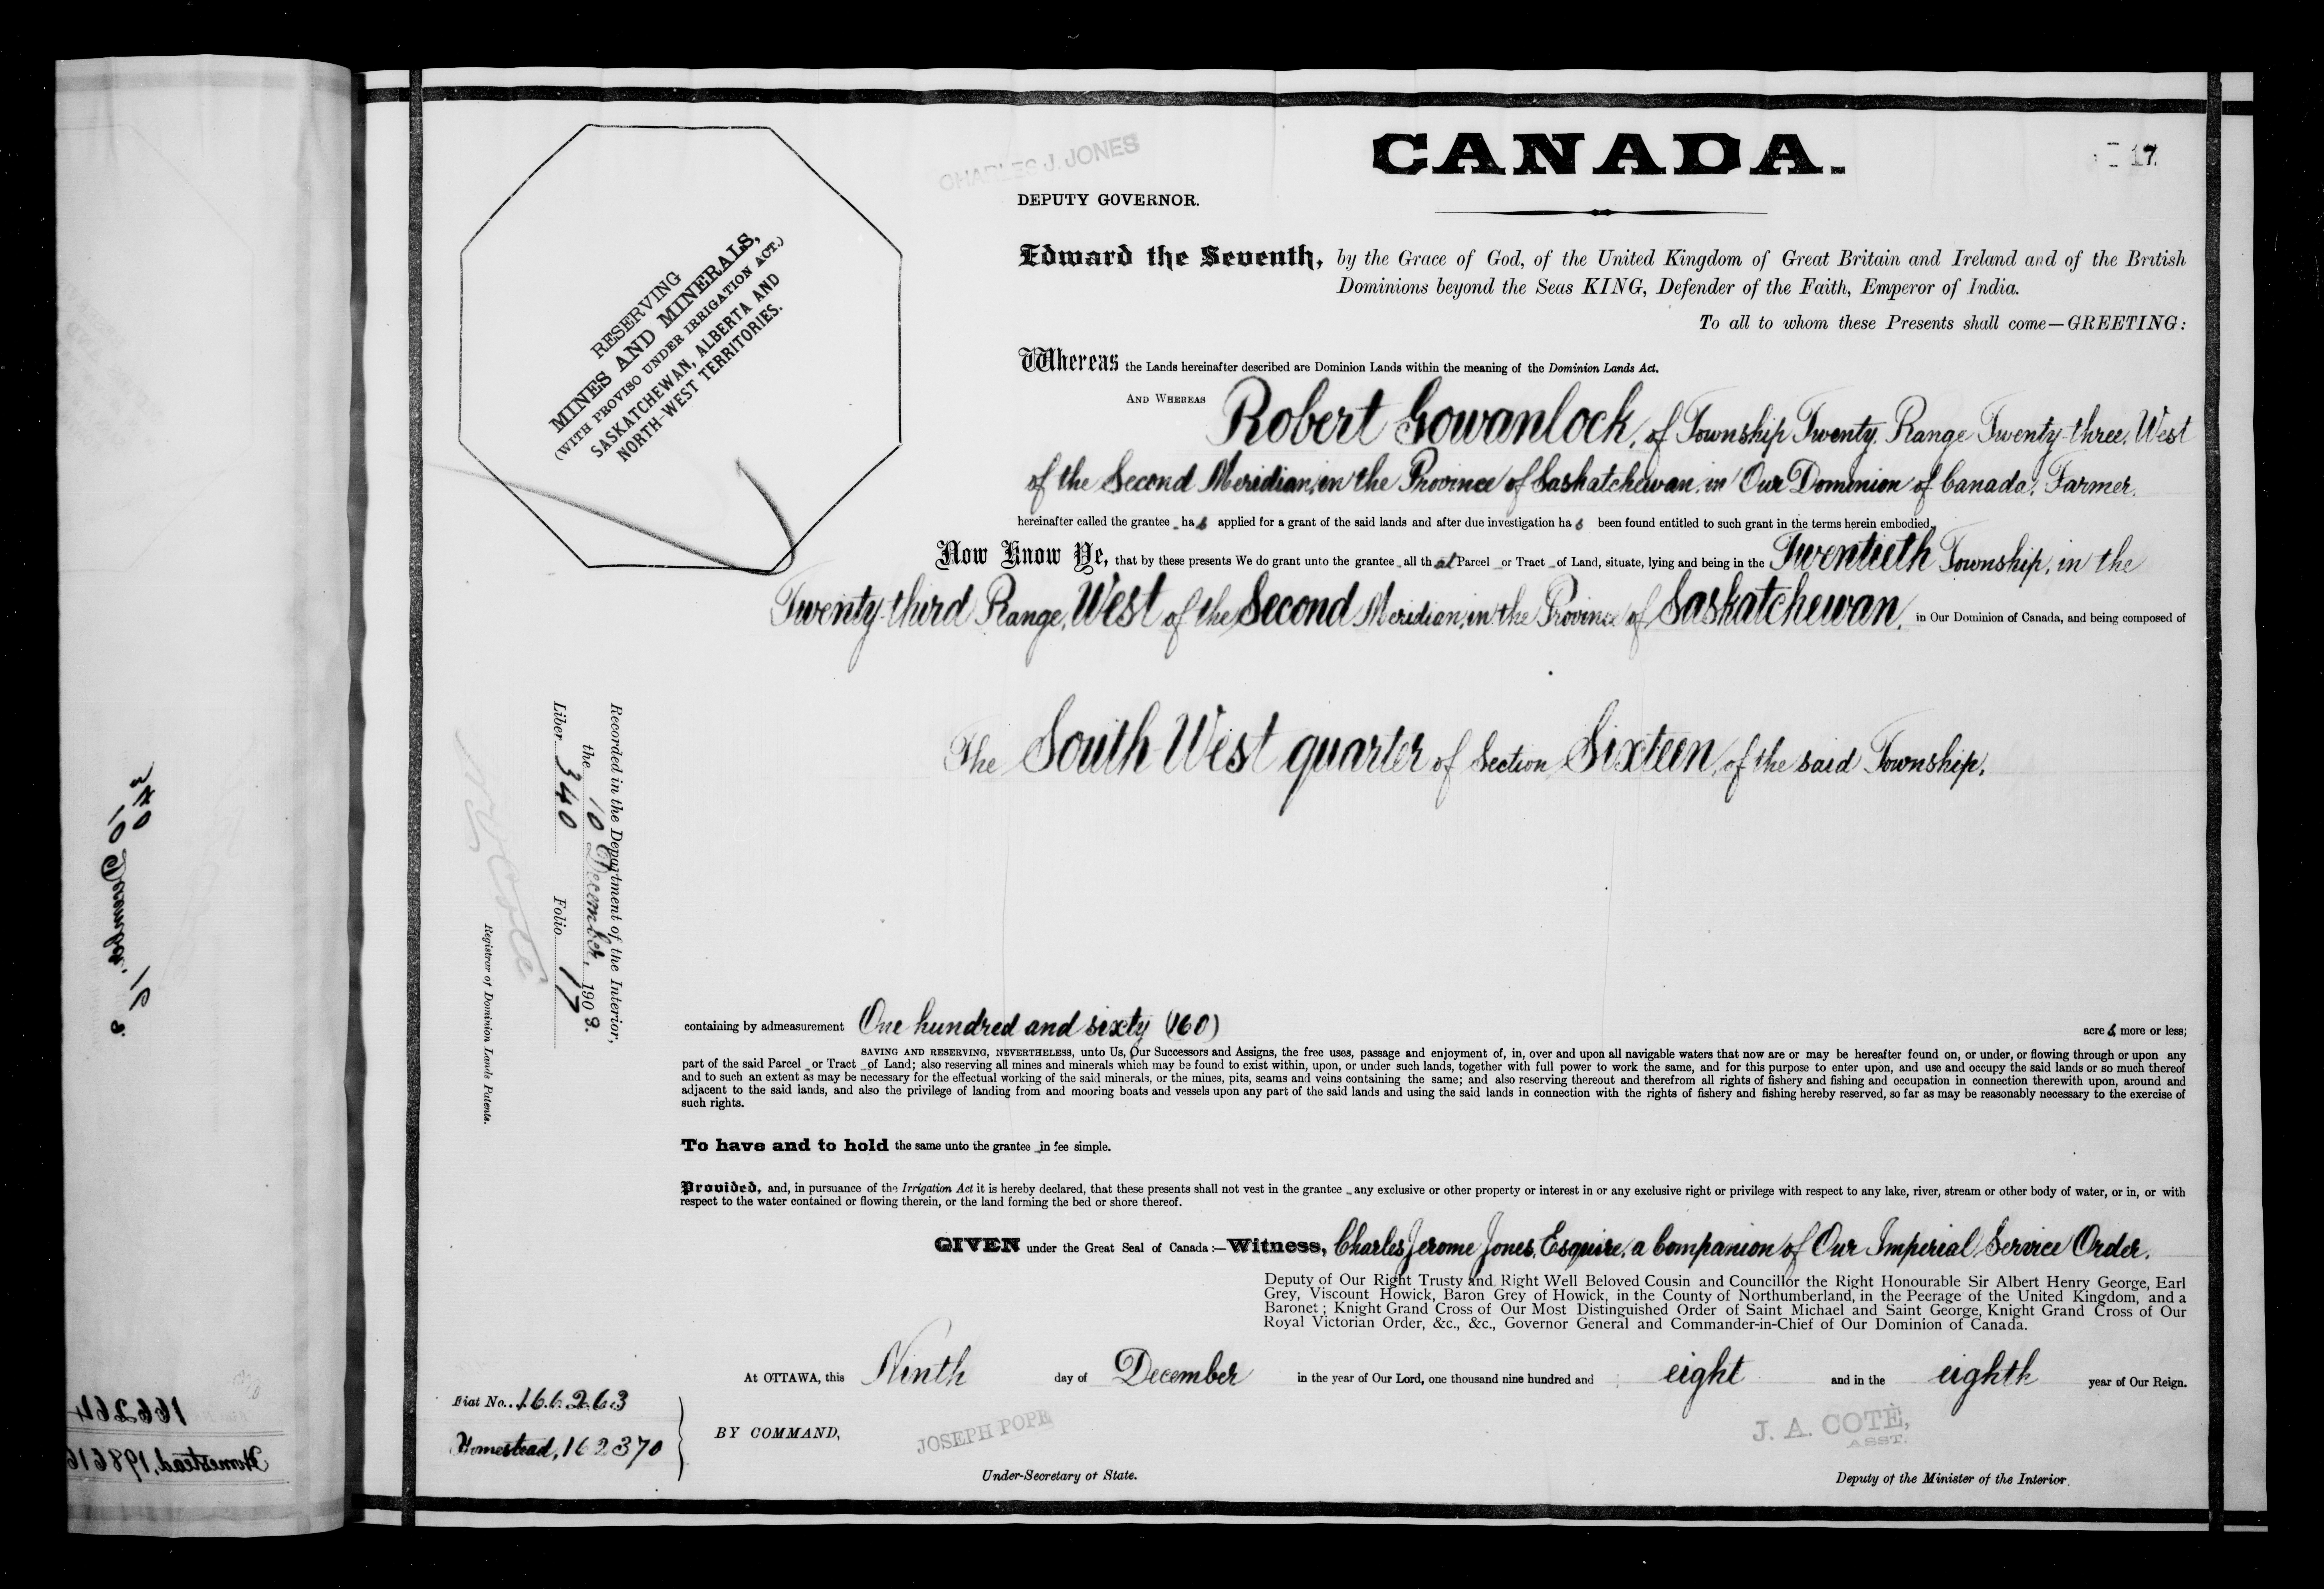 CANADA.
17.
CHARLES J. JONES
DEPUTY GOVERNOR.
RESERVING
MINES AND MINERALS,
(WITH PROVISO UNDER IRRIGATION ACT.)
SASKATCHEWAN, ALBERTA AND
NORTH-WEST TERRITORIES.
Edward the Seventh, by the Grace of God, of the United Kingdom of Great Britain and Ireland and of the British
Dominions beyond the Seas KING, Defender of the Faith, Emperor of India.
To all to whom these Presents shall come—GREETING:
Whereas the Lands hereinafter described are Dominion Lands within the meaning of the Dominion Lands Act.
AND WHEREAS Robert Gowanlock, of Township Twenty, Range Twenty-three, West
of the Second Meridian, in the Province of Saskatchewan, in Our Dominion of Canada, Farmer,
hereinafter called the grantee has applied for a grant of the said lands and after due investigation has been found entitled to such grant in the terms herein embodied,
Now Know Ye, that by these presents We do grant unto the grantee all that Parcel or Tract of Land, situate, lying and being in the Twentieth Township, in the
Twenty-third Range, West of the Second Meridian, in the Province of Saskatchewan, in Our Dominion of Canada, and being composed of
The South West quarter of Section Sixteen, of the said Township,
Recorded in the Department of the Interior,
the 10 December, 1908.
Liber 340 Folio 17
N. O. Coté
Registrar of Dominion Lands Patents.
containing by admeasurement One hundred and sixty (160) acres more or less;
SAVING AND RESERVING, NEVERTHELESS, unto Us, Our Successors and Assigns, the free uses, passage and enjoyment of, in, over and upon all navigable waters that now are or may be hereafter found on, or under, or flowing through or upon any
part of the said Parcel or Tract of Land; also reserving all mines and minerals which may be found to exist within, upon, or under such lands, together with full power to work the same, and for this purpose to enter upon, and use and occupy the said lands or so much thereof
and to such an extent as may be necessary for the effectual working of the said minerals, or the mines, pits, seams and veins containing the same; and also reserving thereout and therefrom all rights of fishery and fishing and occupation in connection therewith upon, around and
adjacent to the said lands, and also the privilege of landing from and mooring boats and vessels upon any part of the said lands and using the said lands in connection with the rights of fishery and fishing hereby reserved, so far as may be reasonably necessary to the exercise of
such rights.
To have and to hold the same unto the grantee in fee simple.
Provided, and, in pursuance of the Irrigation Act it is hereby declared, that these presents shall not vest in the grantee any exclusive or other property or interest in or any exclusive right or privilege with respect to any lake, river, stream or other body of water, or in, or with
respect to the water contained or flowing therein, or the land forming the bed or shore thereof.
GIVEN under the Great Seal of Canada:—Witness, Charles Jerome Jones, Esquire, a Companion of Our Imperial Service Order,
Deputy of Our Right Trusty and Right Well Beloved Cousin and Councillor the Right Honourable Sir Albert Henry George, Earl
Grey, Viscount Howick, Baron Grey of Howick, in the County of Northumberland, in the Peerage of the United Kingdom, and a
Baronet; Knight Grand Cross of Our Most Distinguished Order of Saint Michael and Saint George, Knight Grand Cross of Our
Royal Victorian Order, &c., &c., Governor General and Commander-in-Chief of Our Dominion of Canada.
At OTTAWA, this Ninth day of December in the year of Our Lord, one thousand nine hundred and eight and in the eighth year of Our Reign.
Fiat No. 166263
Homestead, 162370
BY COMMAND,
JOSEPH POPE
Under-Secretary of State.
J. A. COTÈ,
ASST.
Deputy of the Minister of the Interior.
340
10 December,
8.
166264
Homestead, 198616